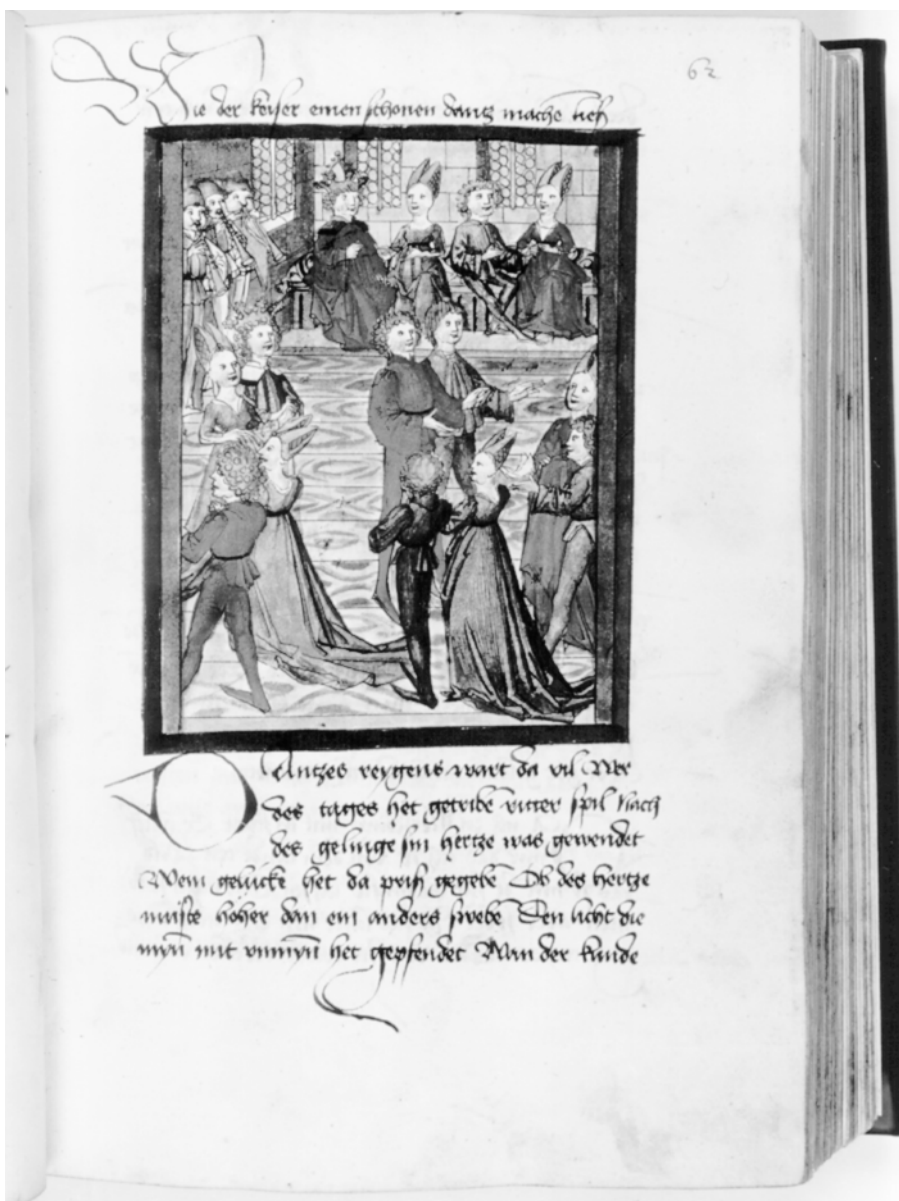 62
Wie der keiser einen schonen dantz mache lieſ
DAntzes reygens wart da vil Wer
des tages het getribē ritter spil Nach
des gelinge sin hertze was gewendet
Wem gelucke het da priſ gegebē Ob des hertze
muſte hoher dan ein anders swebē Den licht die
myn̄ mit vnmyn̄ het gepfendet Wan der kunde